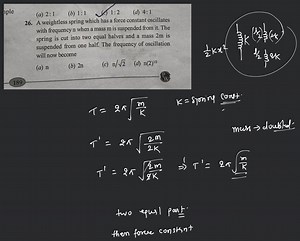 (a) 2:1 (b) 1:1 (c) 1:2 (d) 4:1
26. A weightless spring which has a force constant oscillates
with frequency n when a mass m is suspended from it. The
spring is cut into two equal halves and a mass 2m is
suspended from one half. The frequency of oscillation
will now become
(a) n (b) 2n (c) n/√2 (d) n(2)¹ᐟ²
1/2 kx²
T = 2π √(m/K) K = Spring Const.
mass → doubled
T' = 2π √(2m/2K)
T' = 2π √(2m/2K) ⇒ T' = 2π √(m/K)
two equal part
then force constant